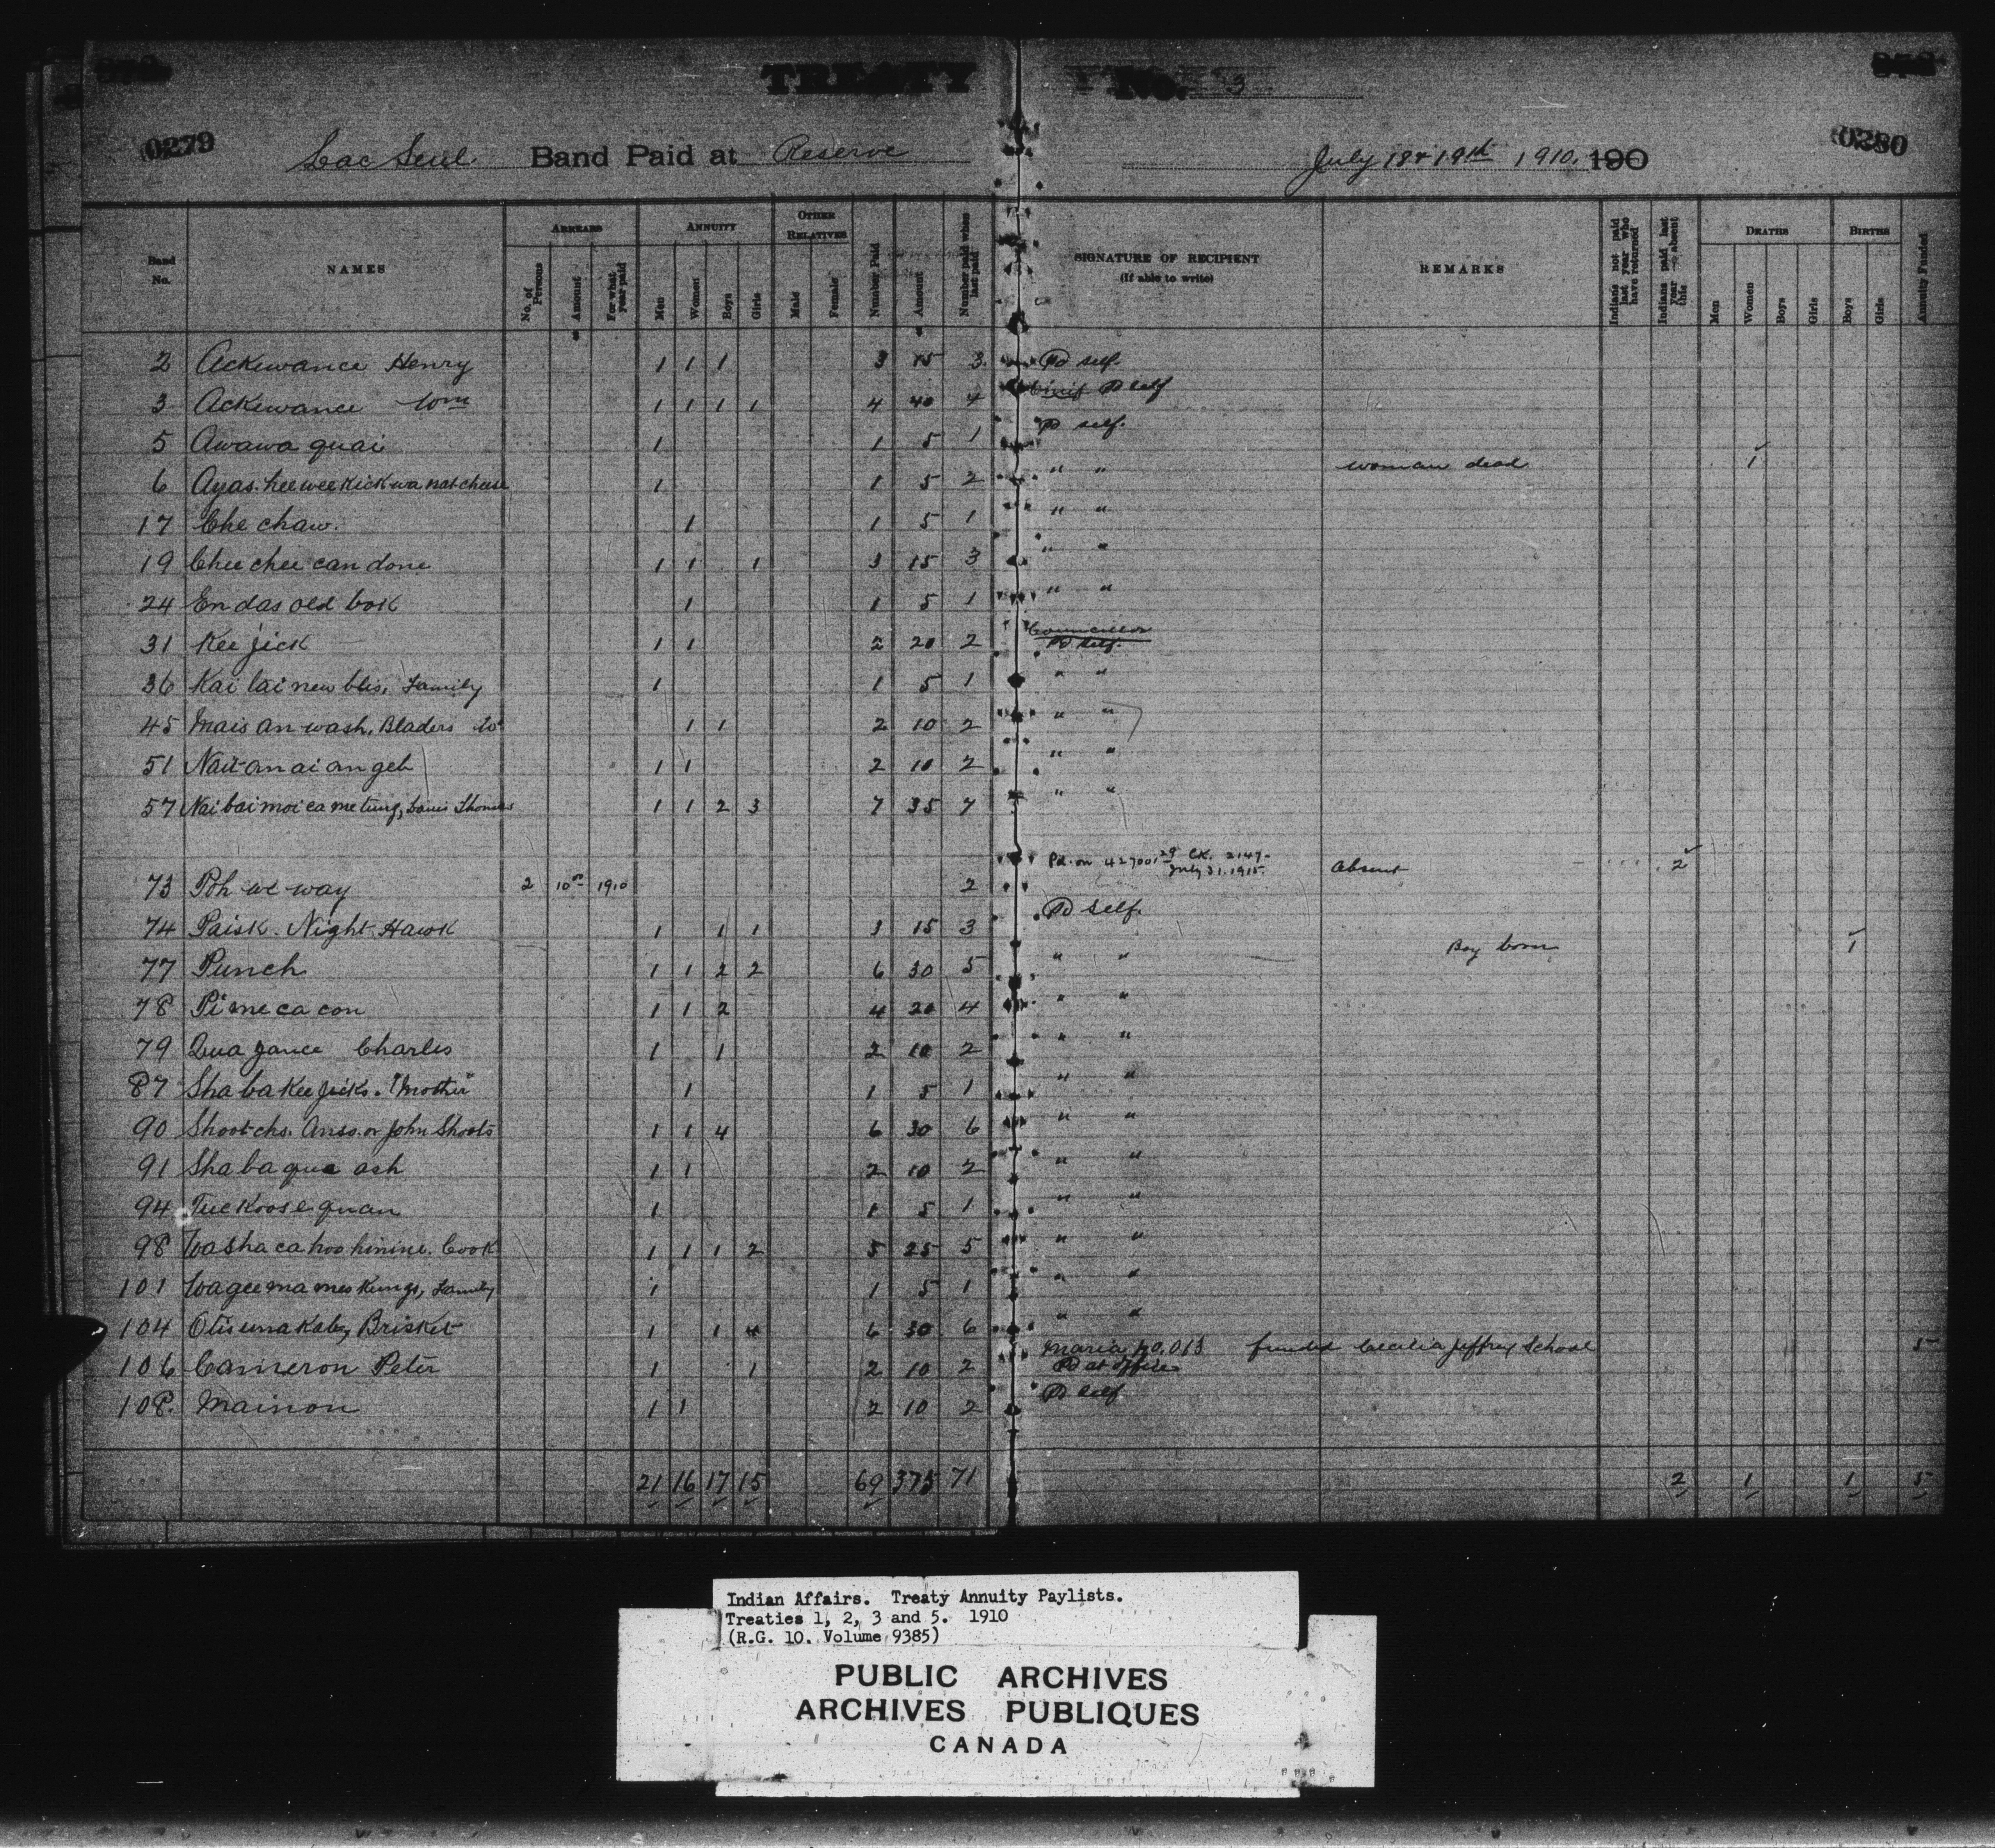 TREATY No. 3
0279
0280
Lac Seul Band Paid at Reserve July 18 & 19th 1910. 190
Band No.
NAMES
ARREARS
No. of Persons
Amount
For what year paid
ANNUITY
Men
Women
Boys
Girls
OTHER RELATIVES
Male
Female
Number Paid
Amount
Number paid when last paid
SIGNATURE OF RECIPIENT
(If able to write)
REMARKS
Indians not paid last year who have returned
Indians paid last year absent this
DEATHS
Men
Women
Boys
Girls
BIRTHS
Boys
Girls
Annuity Funded
2 Ackewance Henry 1 1 1 3 15 3 Pd self.
3 Ackewance Wm 1 1 1 1 4 40 4 Chief Pd self
5 Awawa quai 1 1 5 1 Pd self.
6 Ayas. hee wee kick wa natcheese 1 1 5 2 " " woman dead 1
17 Che chaw. 1 1 5 1 " "
19 Chee chee can done 1 1 1 3 15 3 " "
24 En das old bok 1 1 5 1 " "
31 Kee jick 1 1 2 20 2 Councillor Pd self.
36 Kai tai new blis, Family 1 1 5 1 " "
45 Mais an wash, Bladers W 1 1 2 10 2 " "
51 Nait an ai an geb 1 1 2 10 2 " "
57 Nai bai moi ca me tung, Louis Thomas 1 1 2 3 7 35 7 " "
73 Poh we way 2 10 00 1910 2 Pd. on 427001-29 CK. 2147- July 31. 1915. Absent 2
74 Paisk. Night Hawk 1 1 1 3 15 3 Pd self.
77 Punch 1 1 2 2 6 30 5 " " Boy born 1
78 Pi me ca con 1 1 2 4 20 4 " "
79 Qua gance Charles 1 1 2 10 2 " "
87 Sha ba Kee jicks. "Mother" 1 1 5 1 " "
90 Shoot chs. Anso. or John Shoots 1 1 4 6 30 6 " "
91 Sha ba qua ash 1 1 2 10 2 " "
94 Tuc Koose quan 1 1 5 1 " "
98 Wa sha ca hoo hinine. Cook 1 1 1 2 5 25 5 " "
101 Wa gee ma mes Kungs, Family 1 1 5 1 " "
104 Otis una Kaby Brisket 1 1 4 6 30 6 " "
106 Cameron Peter 1 1 2 10 2 Maria No. 013 funded Cecilia Jeffrey School Pd at office 5
108. Mainon 1 1 2 10 2 Pd self
21 16 17 15 69 375 71 2 1 1 5
Indian Affairs. Treaty Annuity Paylists.
Treaties 1, 2, 3 and 5. 1910
(R.G. 10. Volume 9385)
PUBLIC ARCHIVES
ARCHIVES PUBLIQUES
CANADA